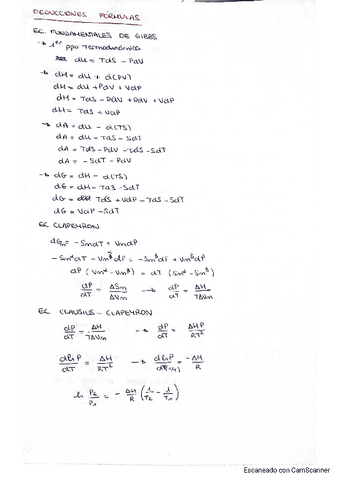 DEDUCCIONES FORMULAS
EC. FUNDAMENTALES DE GIBBS
→ 1er ppo Termodinámica
dU = TdS - PdV
→ dH = dU + d(PV)
dH = dU + PdV + VdP
dH = TdS - PdV + PdV + VdP
dH = TdS + VdP
→ dA = dU - d(TS)
dA = dU - TdS - SdT
dA = TdS - PdV - TdS - SdT
dA = - SdT - PdV
→ dG = dH - d(TS)
dG = dH - TdS - SdT
dG = TdS + VdP - TdS - SdT
dG = VdP - SdT
EC CLAPEYRON
dGm = -SmdT + VmdP
dP (Vmα - Vmβ) = dT (Smα - Smβ)
dP/dT = ΔSm/ΔVm → dP/dT = ΔH/TΔVm
EC CLAUSIUS - CLAPEYRON
dP/dT = ΔH/TΔVm → dP/dT = ΔHP/RT²
dlnP/dT = ΔH/RT² → dlnP/d(1/T) = -ΔH/R
ln P2/P1 = - ΔH/R (1/T2 - 1/T1)
Escaneado con CamScanner